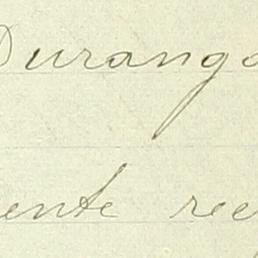 Durango
ente ree